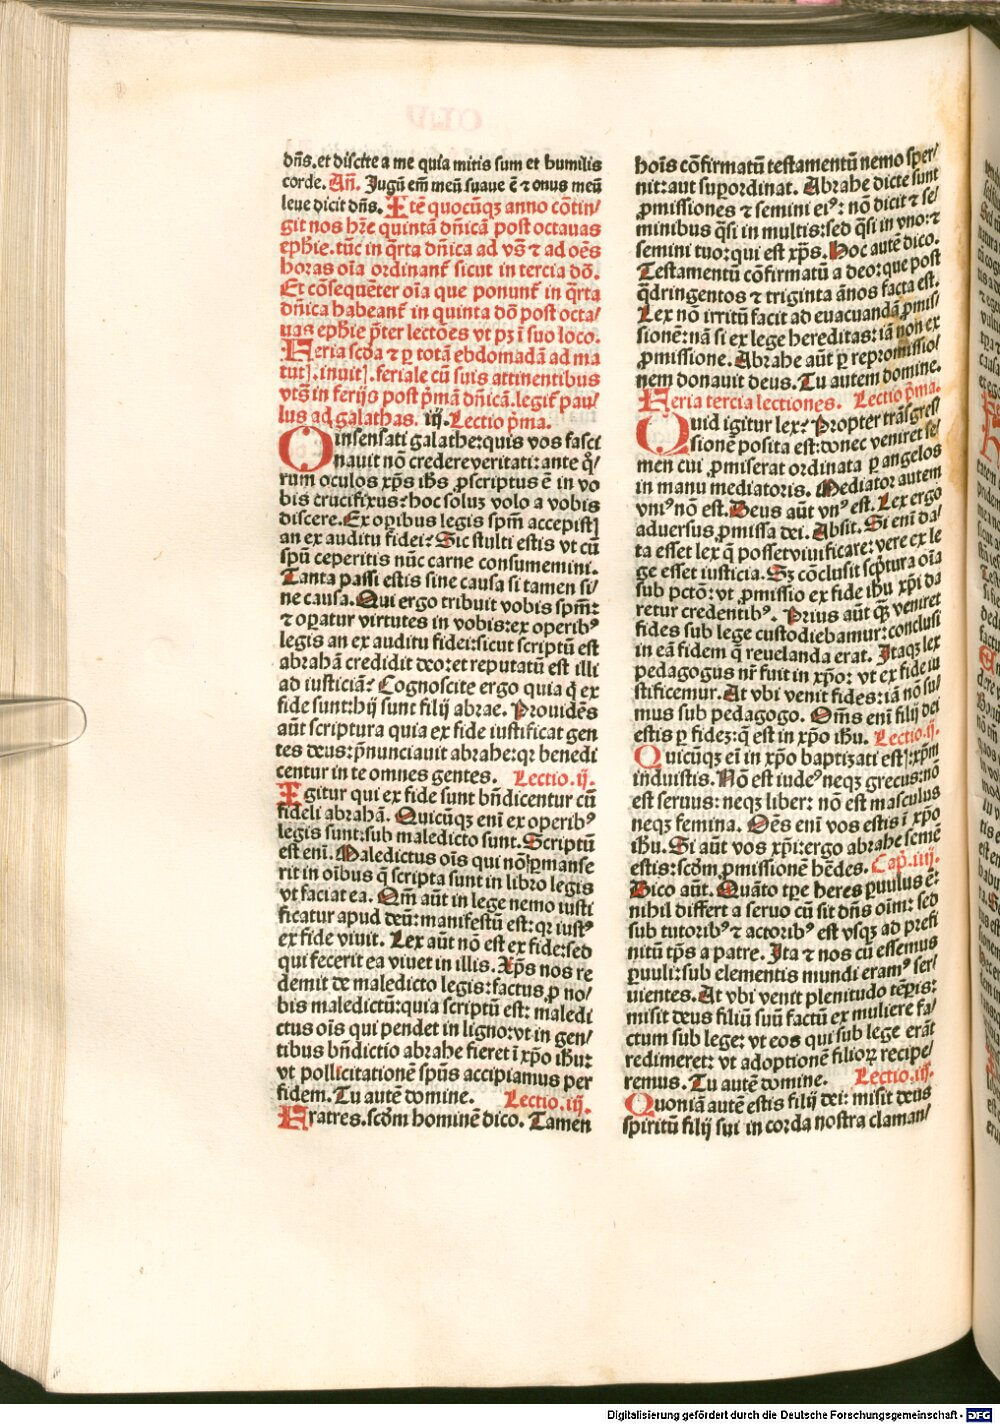 dñs.et discite a me quia mitis sum et humilis
corde. Añ. Jugũ em̃ meũ suaue ẽ ⁊ onus meũ
leue dicit dñs. Itẽ quocũqꝫ anno cõtin/
git nos hr̃e quintã dñicã post octauas
ephie. tũc in q̃rta dñica ad vs̃ ⁊ ad oẽs
horas oĩa ordinant᷑ sicut in tercia dõ.
Et cõsequẽter oĩa que ponunt᷑ in q̃rta
dñica habeant᷑ in quinta dõ post octa/
uas ephie p̃ter lectões vt pꝫ ĩ suo loco.
Feria scd̃a ⁊ ꝑ totã ebdomadã ad ma
tuť. inuiť. feriale cũ suis attinentibus
vts̃ in ferijs post p̃mã dñicã. legiť pau/
lus ad galathas. iij. Lectio p̃ma.
O insensati galathe:quis vos fasci
nauit nõ credere veritati:ante q̃/
rum oculos xp̃s ih̃s ꝓscriptus ẽ in vo
bis crucifixus? hoc soluꝫ volo a vobis
discere. Ex oꝑibus legis spm̃ accepist]
an ex auditu fidei? Sic stulti estis vt cũ
spũ ceperitis nũc carne consumemini.
Tanta passi estis sine causa si tamen si/
ne causa. Qui ergo tribuit vobis spm̃:
⁊ oꝑatur virtutes in vobis:ex operibꝰ
legis an ex auditu fidei:sicut scriptũ est
abrahã credidit deo:et reputatũ est illi
ad iusticiã? Cognoscite ergo quia q̃ ex
fide sunt:hij sunt filij abrae. Prouidẽs
aũt scriptura quia ex fide iustificat gen
tes deus:p̃nunciauit abrahe:qꝛ benedi
centur in te omnes gentes. Lectio.ij.
Igitur qui ex fide sunt bñdicentur cũ
fideli abrahã. Quicũqꝫ enĩ ex operibꝰ
legis sunt:sub maledicto sunt. Scriptũ
est enĩ. Maledictus oĩs qui nõ ꝑmanse
rit in oĩbus q̃ scripta sunt in libro legis
vt faciat ea. Qm̃ aũt in lege nemo iusti
ficatur apud deũ:manifestũ est:qꝛ iustꝰ
ex fide viuit. Lex aũt nõ est ex fide:sed
qui fecerit ea viuet in illis. Xp̃s nos re
demit de maledicto legis:factus ꝓ no/
bis maledictũ:quia scriptũ est: maledi
ctus oĩs qui pendet in ligno:vt in gen/
tibus bñdictio abrahe fieret ĩ xp̃o ih̃u:
vt pollicitationẽ sp̃us accipiamus per
fidem. Tu autẽ domine. Lectio.iij.
Fratres. scd̃m hominẽ dico. Tamen
hoĩs cõfirmatũ testamentũ nemo sper/
nit:aut supordinat. Abrahe dicte sunt
ꝓmissiones ⁊ semini eiꝰ: nõ dicit ⁊ se/
minibus q̃si in multis:sed q̃si in vno:⁊
semini tuo:qui est xp̃s. Hoc autẽ dico.
Testamentũ cõfirmatũ a deo:que post
q̃dringentos ⁊ triginta ãnos facta est.
Lex nõ irritũ facit ad euacuandã ꝓmis/
sionẽ:nã si ex lege hereditas:iã non ex
ꝓmissione. Abrahe aũt ꝑ repromissio/
nem donauit deus. Tu autem domine.
Feria tercia lectiones. Lectio p̃ma.
Quid igitur lex? Propter trãsgres/
sionẽ posita est:donec veniret se/
men cui ꝓmiserat ordinata ꝑ angelos
in manu mediatoris. Mediator autem
vniꝰ nõ est. Deus aũt vnꝰ est. Lex ergo
aduersus ꝓmissa dei. Absit. Si enĩ da/
ta esset lex q̃ posset viuificare: vere ex le
ge esset iusticia. Sꝫ cõclusit scp̃tura oĩa
sub pctõ:vt ꝓmissio ex fide ih̃u xp̃i da
retur credentibꝰ. Prius aũt qꝫ̃ veniret
fides sub lege custodiebamur:conclusi
in eã fidem q̃ reuelanda erat. Itaqꝫ lex
pedagogus nr̃ fuit in xp̃o: vt ex fide iu
stificemur. At vbi venit fides:iã nõ su/
mus sub pedagogo. Om̃s enĩ filij dei
estis ꝑ fideꝫ:q̃ est in xp̃o ih̃u. Lectio.ij.
Quicũqꝫ eĩ in xp̃o baptizati est]:xp̃m
induistis. Nõ est iudeꝰ neqꝫ grecus:nõ
est seruus: neqꝫ liber: nõ est masculus
neqꝫ femina. Oẽs enĩ vos estis ĩ xp̃o
ih̃u. Si aũt vos xp̃i:ergo abrahe semẽ
estis:scd̃m ꝓmissionẽ hẽdes. Cap̃.iiij.
Dico aũt. Quãto tꝑe heres puulus ẽ:
nihil differt a seruo cũ sit dñs oĩm: sed
sub tutoribꝰ ⁊ actoribꝰ est vsqꝫ ad prefi
nitũ tp̃s a patre. Ita ⁊ nos cũ essemus
ꝑuuli:sub elementis mundi eramꝰ ser/
uientes. At vbi venit plenitudo tẽpis:
misit deus filiũ suũ factũ ex muliere fa/
ctum sub lege: vt eos qui sub lege erãt
redimeret: vt adoptionẽ filioꝝ recipe/
remus. Tu autẽ domine. Lectio.iij.
Quoniã autẽ estis filij dei: misit deus
spiritũ filij sui in corda nostra claman/
Digitalisierung gefördert durch die Deutsche Forschungsgemeinschaft - DFG